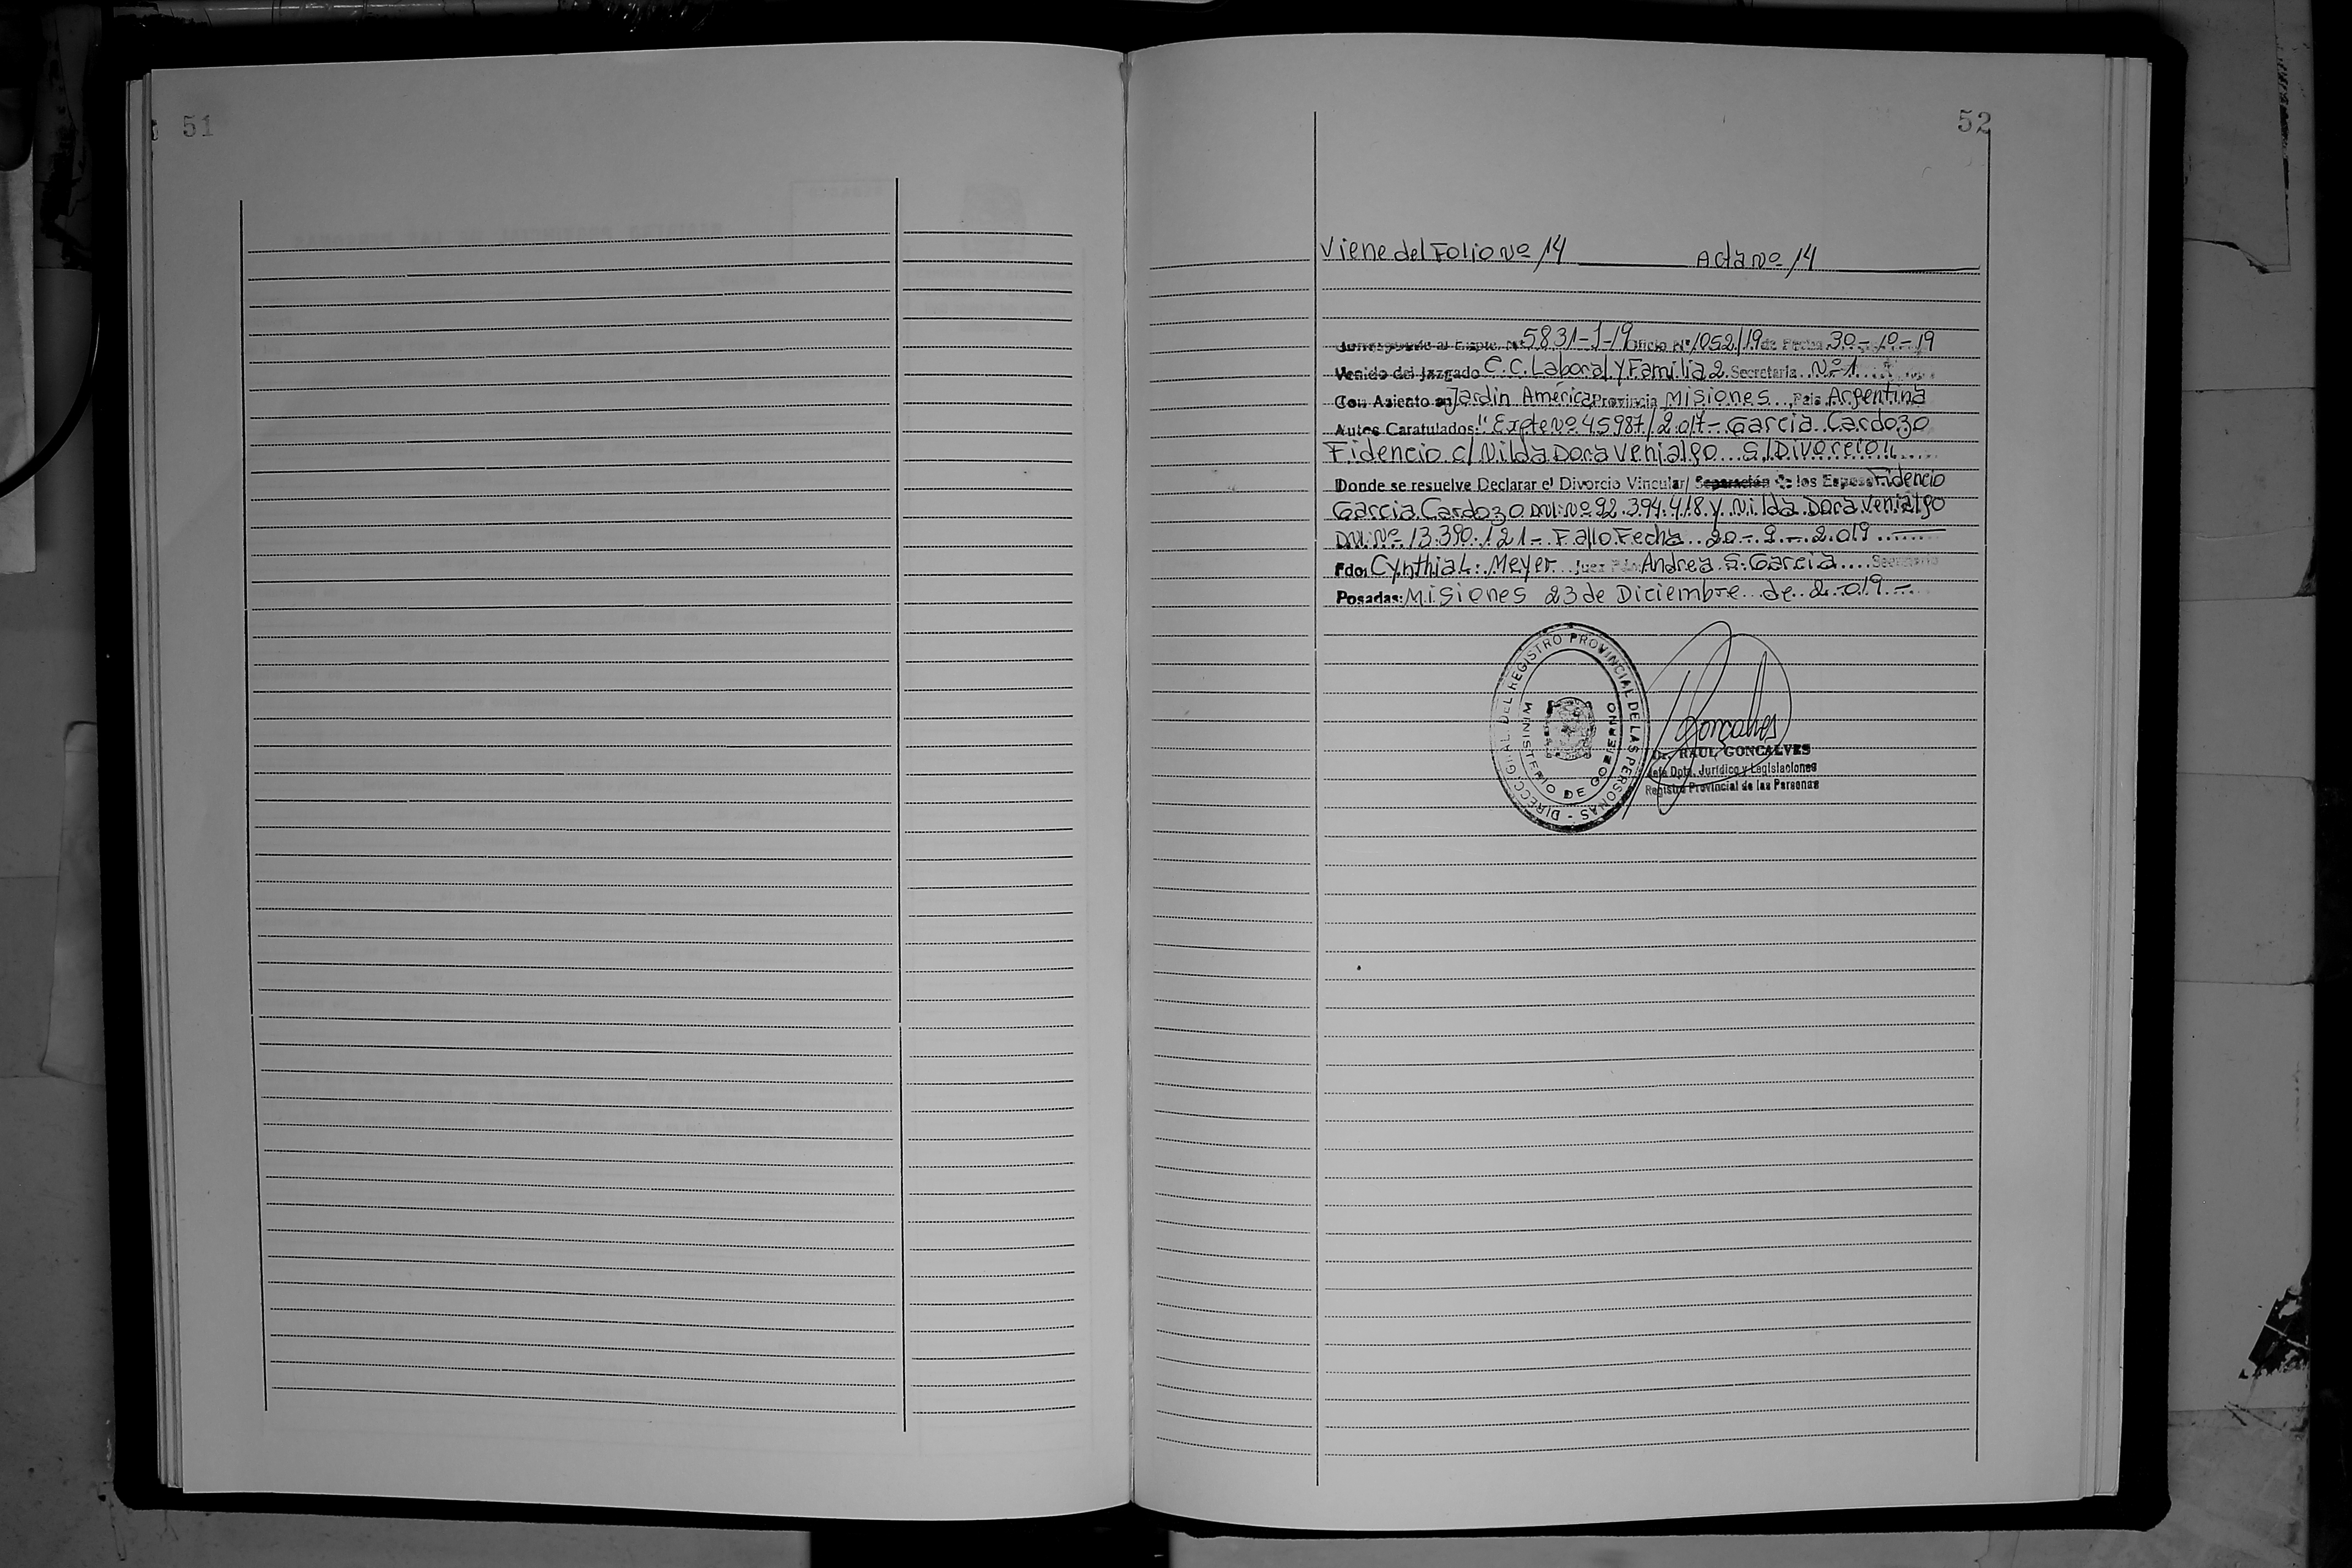 51
52
Viene del Folio Nº 14 Acta Nº 14
Corresponde al Expte. Nº 5831-J-19 Oficio Nº 1052/19 de Fecha 30-10-19
Venido del Juzgado C.C. Laboral y Familia 2 Secretaria Nº 1
Con Asiento en Jardin América Provincia Misiones País Argentina
Autos Caratulados: "Expte Nº 45987/2.017- Garcia Cardozo
Fidencio c/ Nilda Dora Venialgo S/Divorcio"
Donde se resuelve Declarar el Divorcio Vincular/ Separación de los Esposos Fidencio
Garcia Cardozo DNI: Nº 92.394.418 y Nilda Dora Venialgo
DNI: Nº 13.390.121- Fallo Fecha 20-9-2.019
Fdo: Cynthia L. Meyer Juez Fdo: Andrea S. Garcia Secretario
Posadas: Misiones 23 de Diciembre de 2.019-
DIRECC. GRAL. DEL REGISTRO PROVINCIAL DE LAS PERSONAS -
MINISTERIO DE GOBIERNO
Goncalves
Dr. RAUL GONCALVES
Jefe Dpto. Jurídico y Legislaciones
Registro Provincial de las Personas